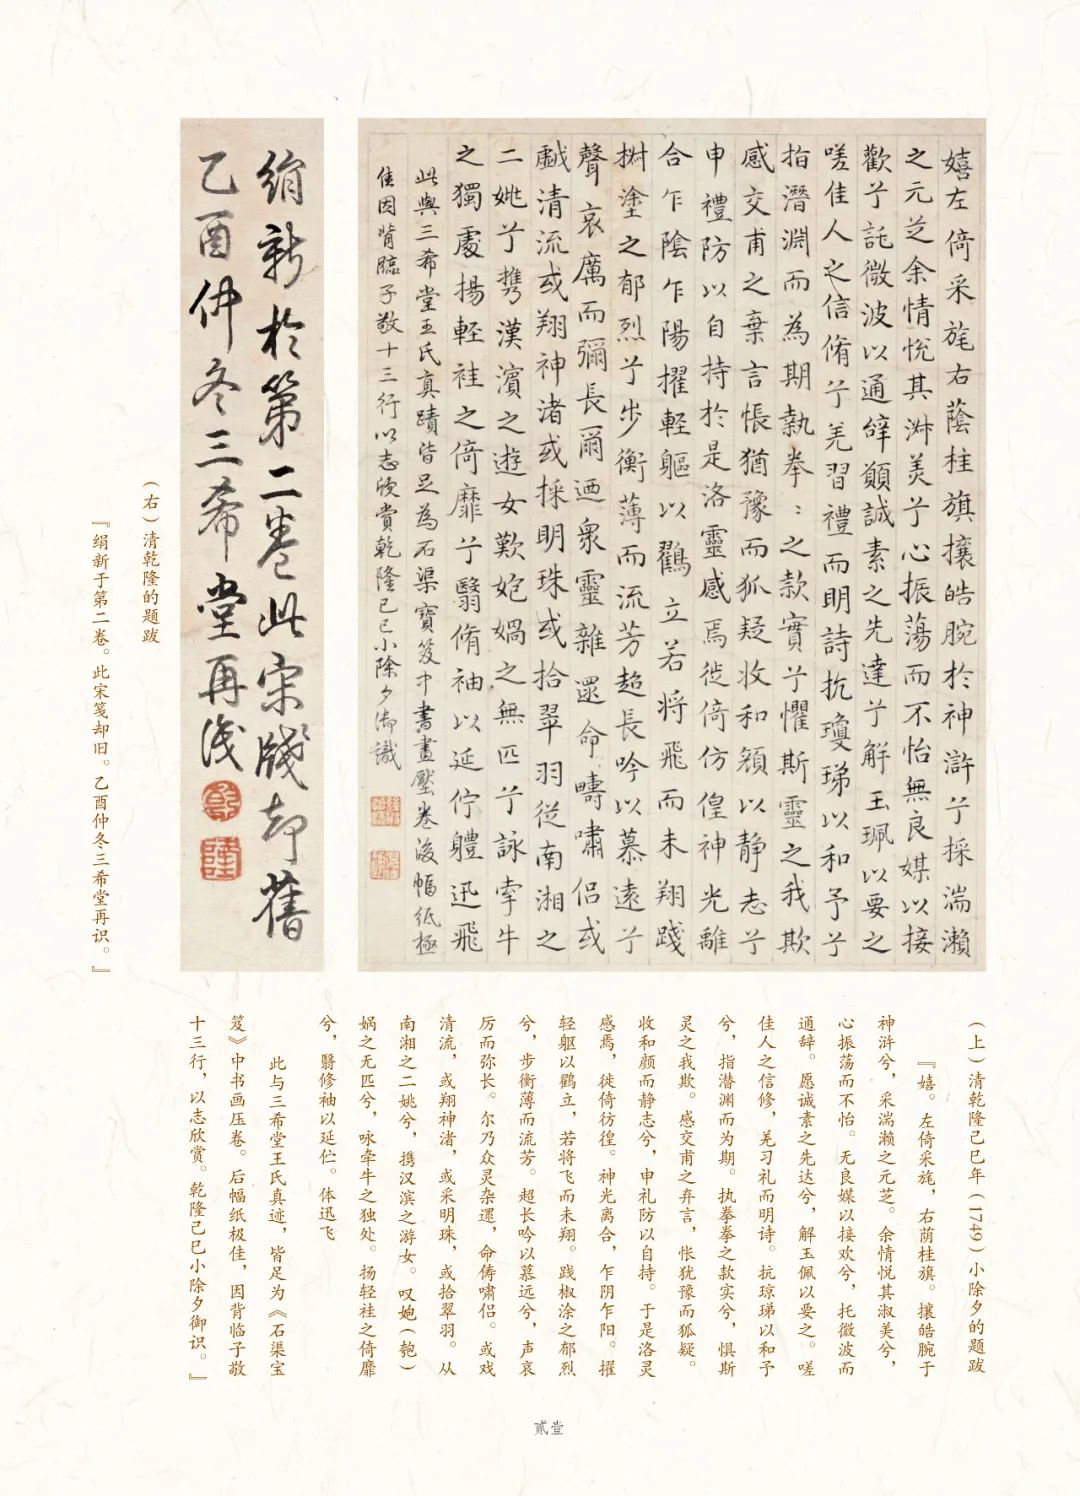 嬉左倚采旄右蔭桂旗攘皓腕於神滸兮採湍瀨
之元芝余情悅其淑美兮心振蕩而不怡無良媒以接
歡兮託微波以通辭願誠素之先達兮解玉珮以要之
嗟佳人之信脩兮羌習禮而明詩抗瓊珶以和予兮
指潛淵而為期執拳〻之款實兮懼斯靈之我欺
感交甫之棄言悵猶豫而狐疑收和顏以靜志兮
申禮防以自持於是洛靈感焉徙倚仿偟神光離
合乍陰乍陽擢輕軀以鸖立若將飛而未翔踐
椒塗之郁烈兮步衡薄而流芳超長吟以慕遠兮
聲哀厲而彌長爾迺衆靈雜遝命疇嘯侣或
戱清流或翔神渚或採明珠或拾翠羽從南湘之
二姚兮携漢濱之遊女歎妑媧之無匹兮詠牽牛
之獨處揚輕袿之倚靡兮翳脩袖以延佇軆迅飛
此與三希堂王氏真蹟皆足為石渠寶笈中書畫壓卷後幅紙極
佳因背臨子敬十三行以志欣賞乾隆己巳小除夕御識
絹新於第二卷此宋牋却舊
乙酉仲冬三希堂再識
乾
隆
(右)清乾隆的题跋
『绢新于第二卷。此宋笺却旧。乙酉仲冬三希堂再识。』
(上)清乾隆己巳年(1749)小除夕的题跋
『嬉。左倚采旄，右荫桂旗。攘皓腕于
神浒兮，采湍濑之元芝。余情悦其淑美兮，
心振荡而不怡。无良媒以接欢兮，托微波而
通辞。愿诚素之先达兮，解玉佩以要之。嗟
佳人之信修，羌习礼而明诗。抗琼珶以和予
兮，指潜渊而为期。执拳拳之款实兮，惧斯
灵之我欺。感交甫之弃言，怅犹豫而狐疑。
收和颜而静志兮，申礼防以自持。于是洛灵
感焉，徙倚彷徨。神光离合，乍阴乍阳。擢
轻躯以鹳立，若将飞而未翔。践椒涂之郁烈
兮，步衡薄而流芳。超长吟以慕远兮，声哀
厉而弥长。尔乃众灵杂遝，命俦啸侣。或戏
清流，或翔神渚，或采明珠，或拾翠羽。从
南湘之二姚兮，携汉滨之游女。叹妑(匏)
娲之无匹兮，咏牵牛之独处。扬轻袿之倚靡
兮，翳修袖以延伫。体迅飞
此与三希堂王氏真迹，皆足为《石渠宝
笈》中书画压卷。后幅纸极佳，因背临子敬
十三行，以志欣赏。乾隆己巳小除夕御识。』
贰壹